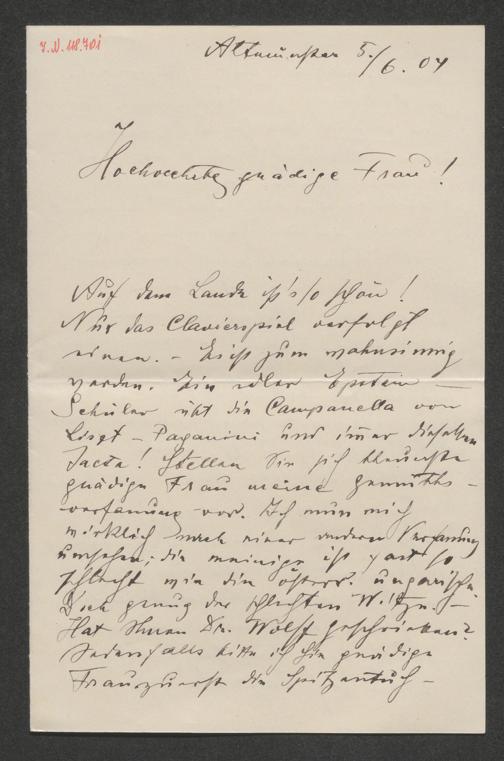 J.N. 118.701
Altmünster 5./6. 04
Hochverehrte gnädige Frau!
Auf dem Lande ist's so schön!
Nur das Clavierspiel verfolgt
einen. – Es ist zum wahnsinnig
werden. Ein edler Epstein –
Schüler übt die Campanella von
Liszt – Paganini und immer dieselben
Tacte! Stellen Sie sich
gnädige Frau meine Gemüths –
verfassung vor. Ich muss mich
wirklich nach einer andern Verfassung
umsehen; die meinige ist fast so
schlecht wie die österr. ungarische.
Doch genug der schlechten Witze. –
Hat Ihnen Dr. Wolff geschrieben?
Jedenfalls bitte ich Sie gnädige
Frau zuerst die Spitzentuch –